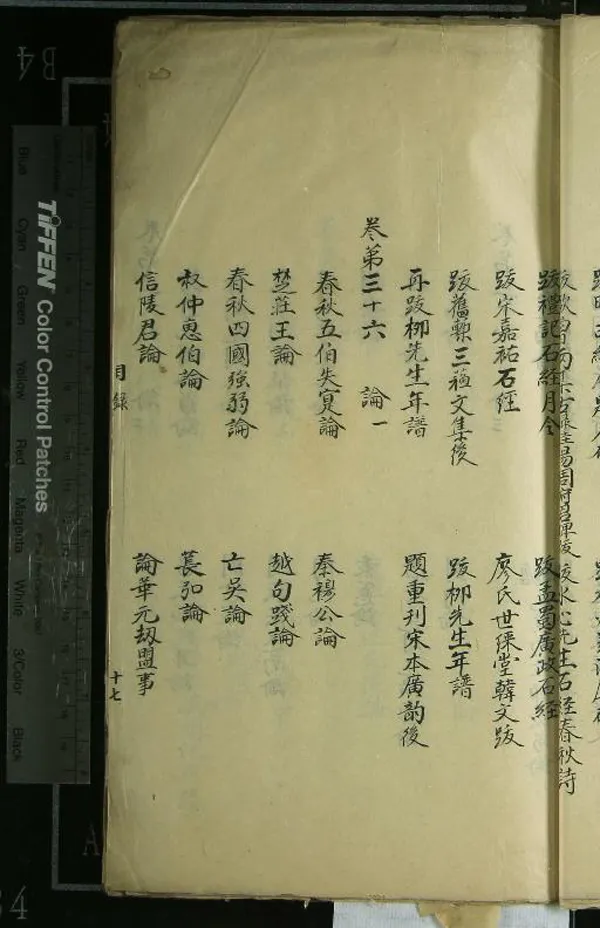 跋禮記石經月令
跋孟蜀廣政石經
跋宋嘉祐石經
廖氏世綵堂韓文跋
跋舊槧三蘓文集後
跋柳先生年譜
再跋柳先生年譜
題重刊宋本廣韵後
卷第三十六 論一
春秋五伯失寔論
秦穆公論
楚莊王論
越句踐論
春秋四國強弱論
亡吳論
叔仲惠伯論
萇弘論
信陵君論
論華元刼盟事
目錄
十七
TIFFEN Color Control Patches
Blue
Cyan
Green
Yellow
Red
Magenta
White
3/Color
Black
B4